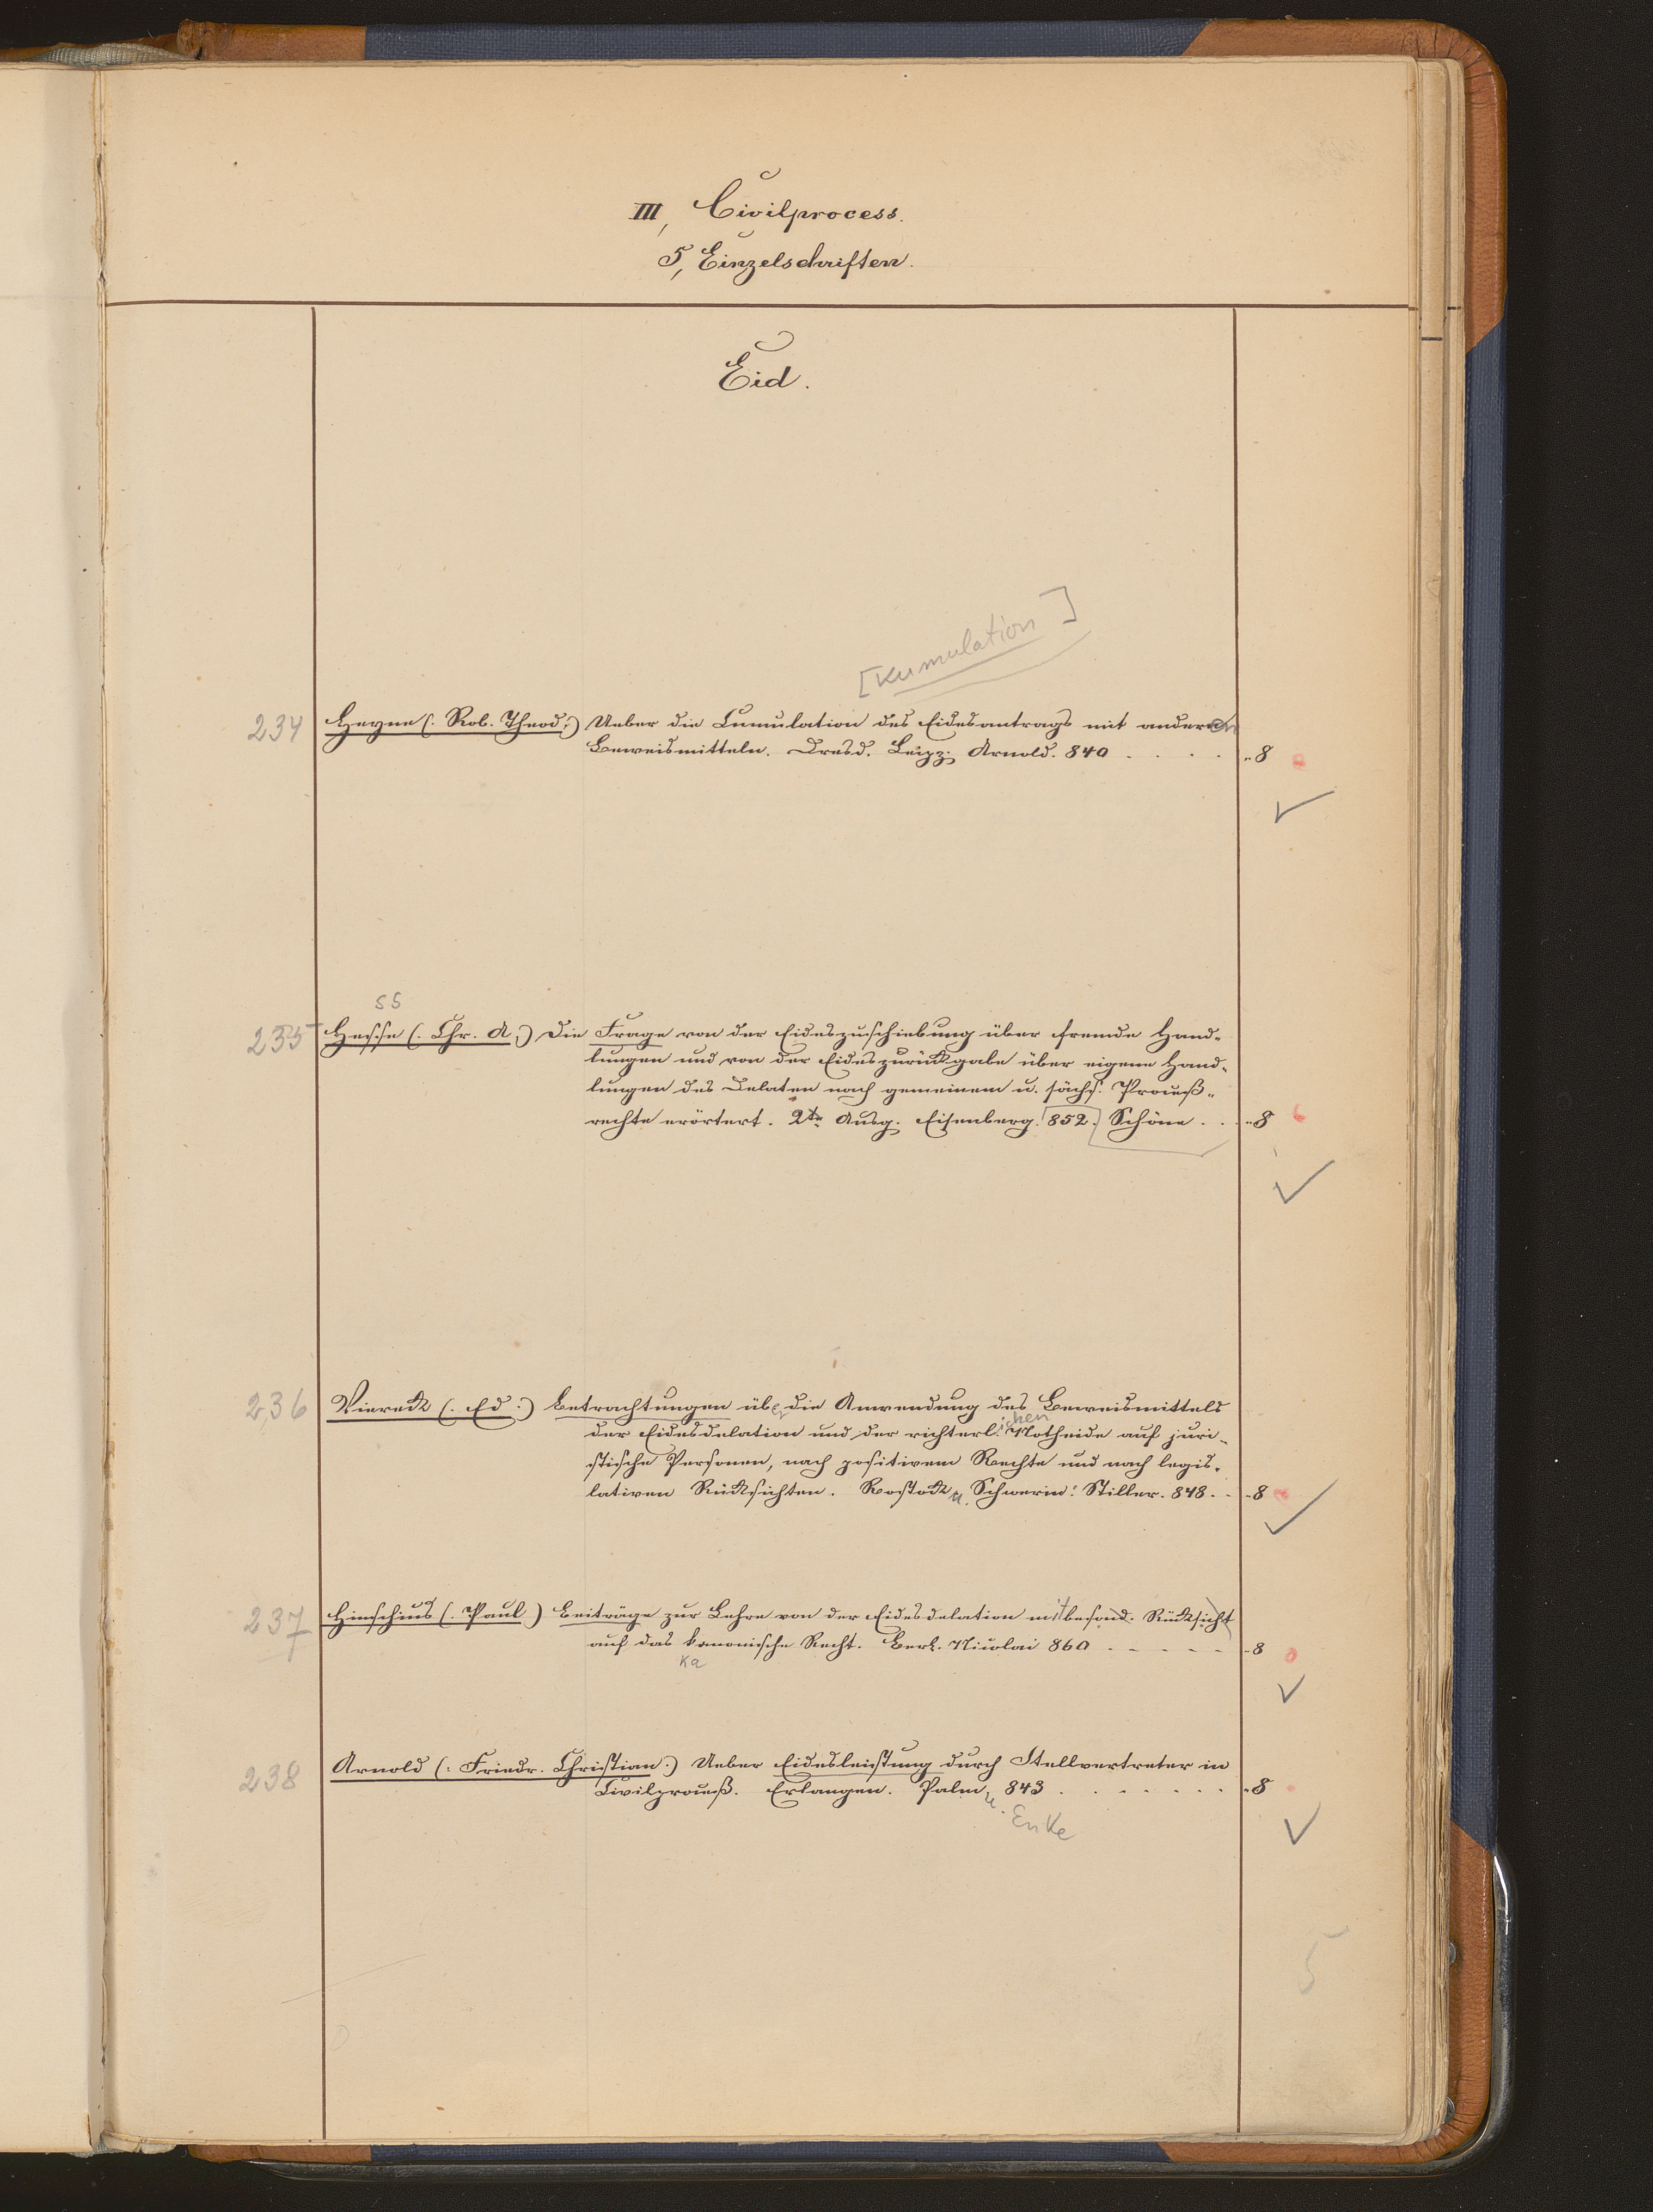 III, Civilprocess.
5, Einzelschriften.
Eid.
[Kumulation]
234 Heyne (: Rob. Theod:) Ueber die Cumulation des Eidesantrags mit anderen
Beweismitteln. Dresd. Leipz. Arnold. 840 . . . . "8
ss
235 Hesse (: Chr. A:) Die Frage von der Eideszuschiebung über fremde Hand-
lungen und von der Eideszurückgabe über eigene Hand-
lungen des Delaten nach gemeinem u. sächs. Proceß-
rechte erörtert. 2te Ausg. Eisenberg. 852. Schöne . . "8
236 Viereck (: Ed:) Betrachtungen über die Anwendung des Beweismittels
der Eidesdelation und der richterlichen Notheide auf juri-
stische Personen, nach positivem Rechte und nach legis-
lativen Rücksichten. Rostock u. Schwerin: Stiller. 848. . "8
237 Hinschius (: Paul) Beiträge zur Lehre von der Eidesdelation mit besond. Rücksicht
auf das kanonische Recht. Berl. Nicolai 860 - - - - - "8
Ka
238 Arnold (: Friedr. Christian:) Ueber Eidesleistung durch Stellvertreter in
Civilproceß. Erlangen. Palm 843 . . . . . . . "8
u. Enke
5